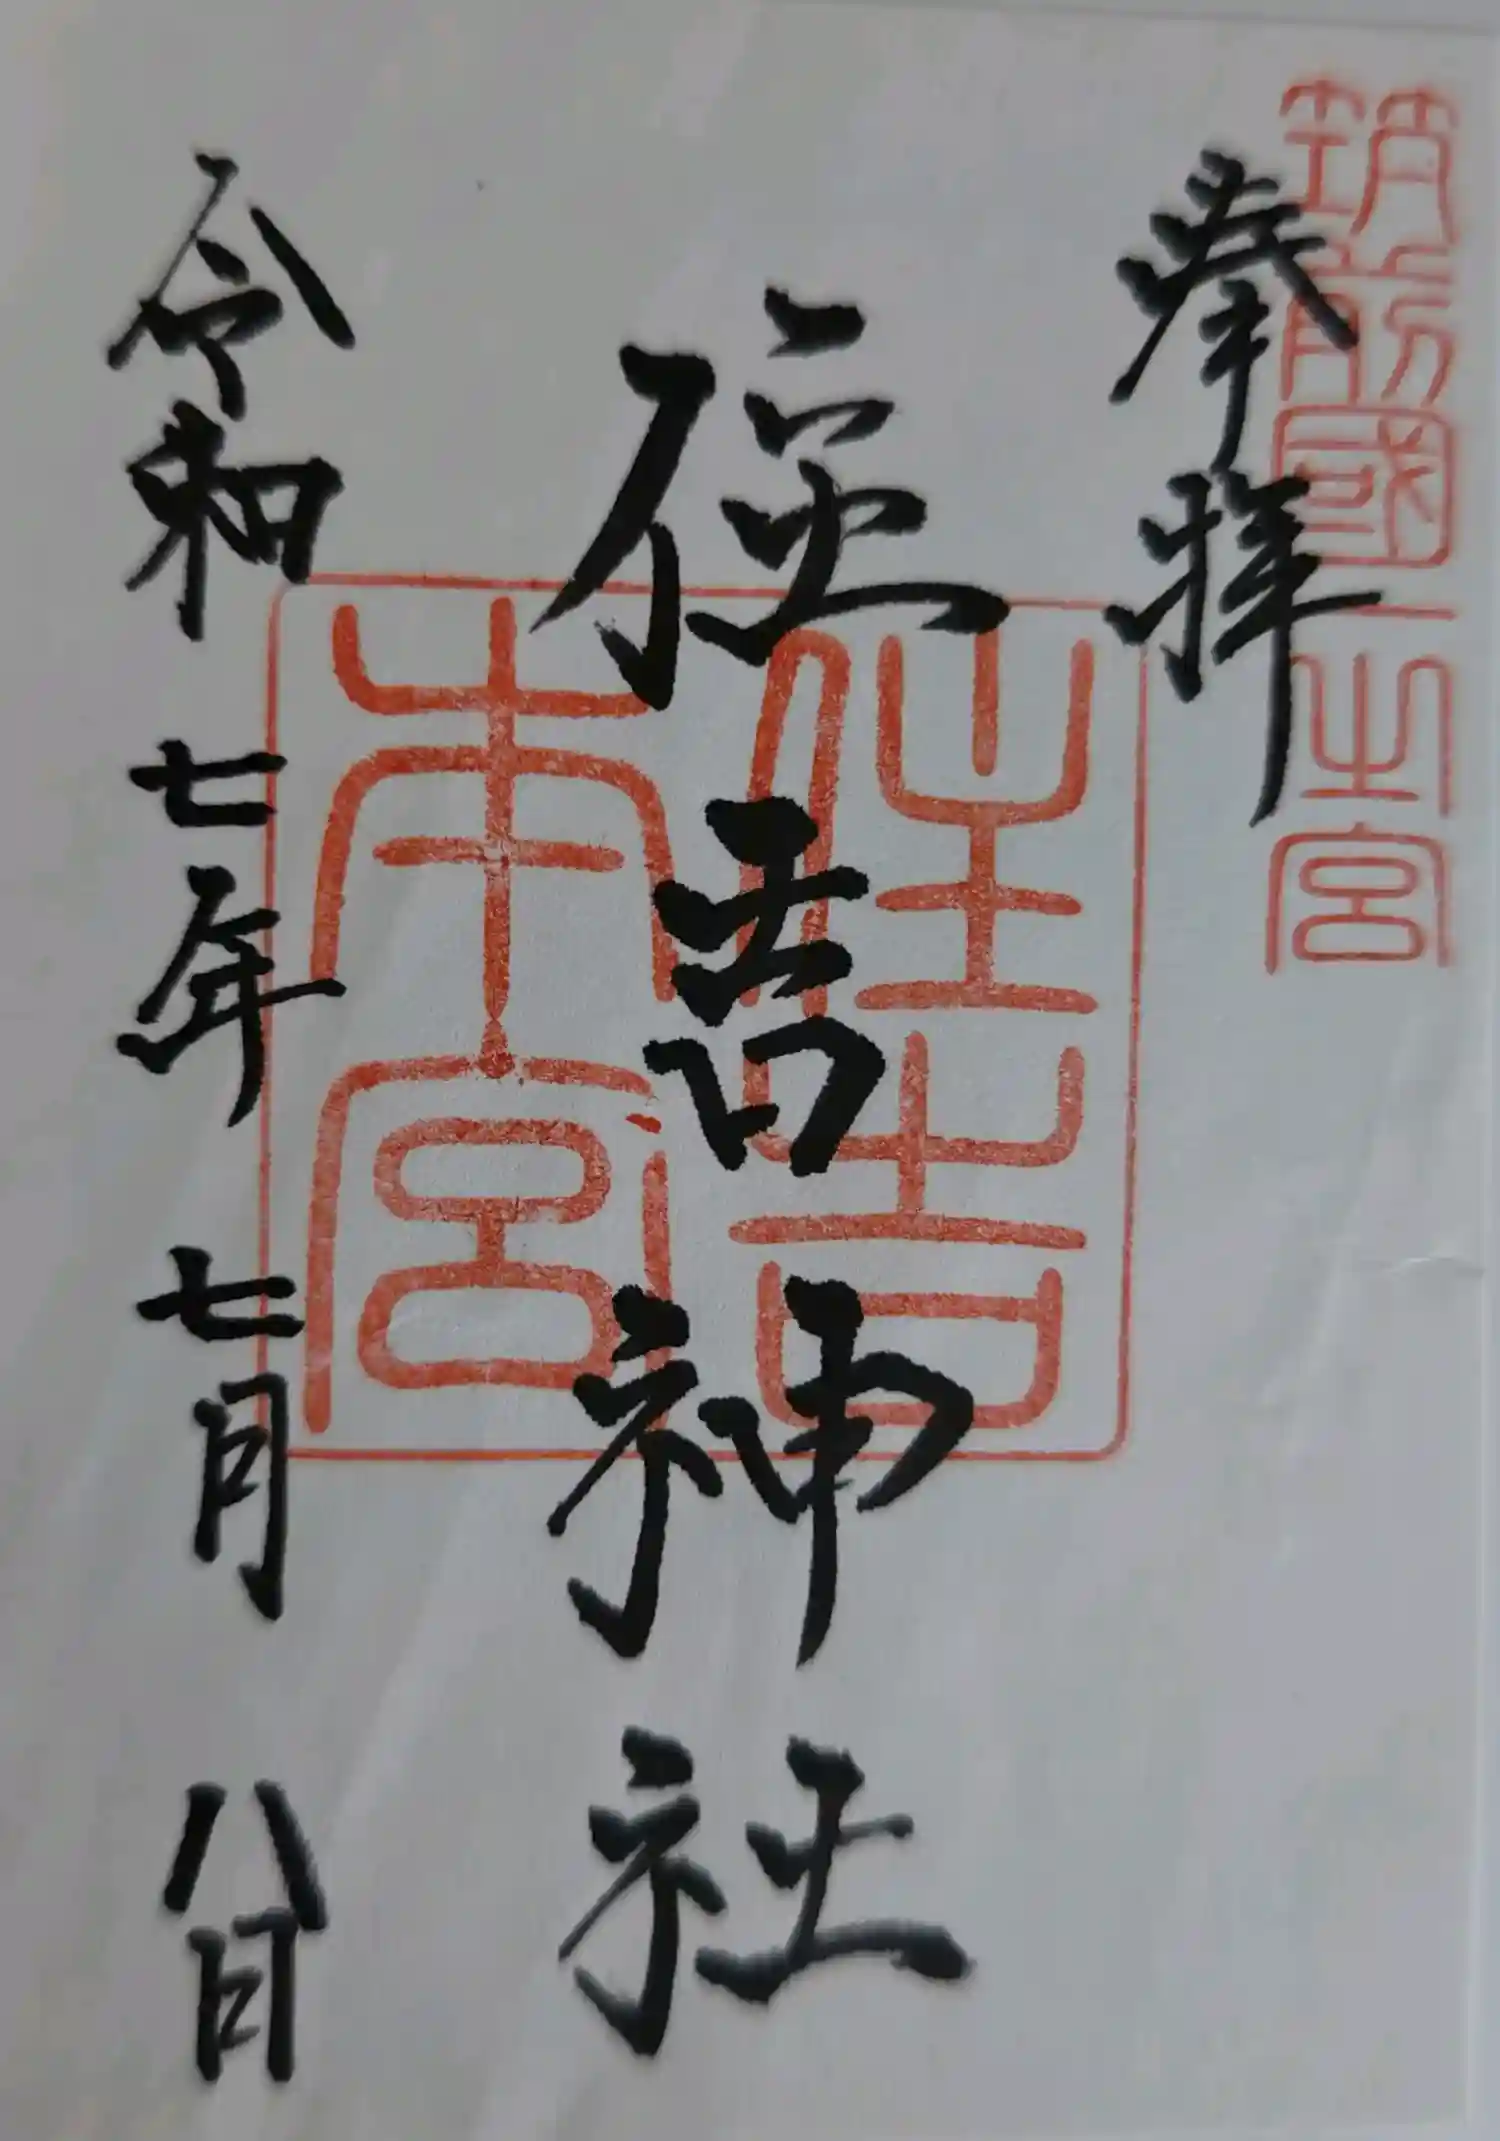 筑前國一之宮
奉拝
住吉神社
住吉
本宮
令和七年七月八日